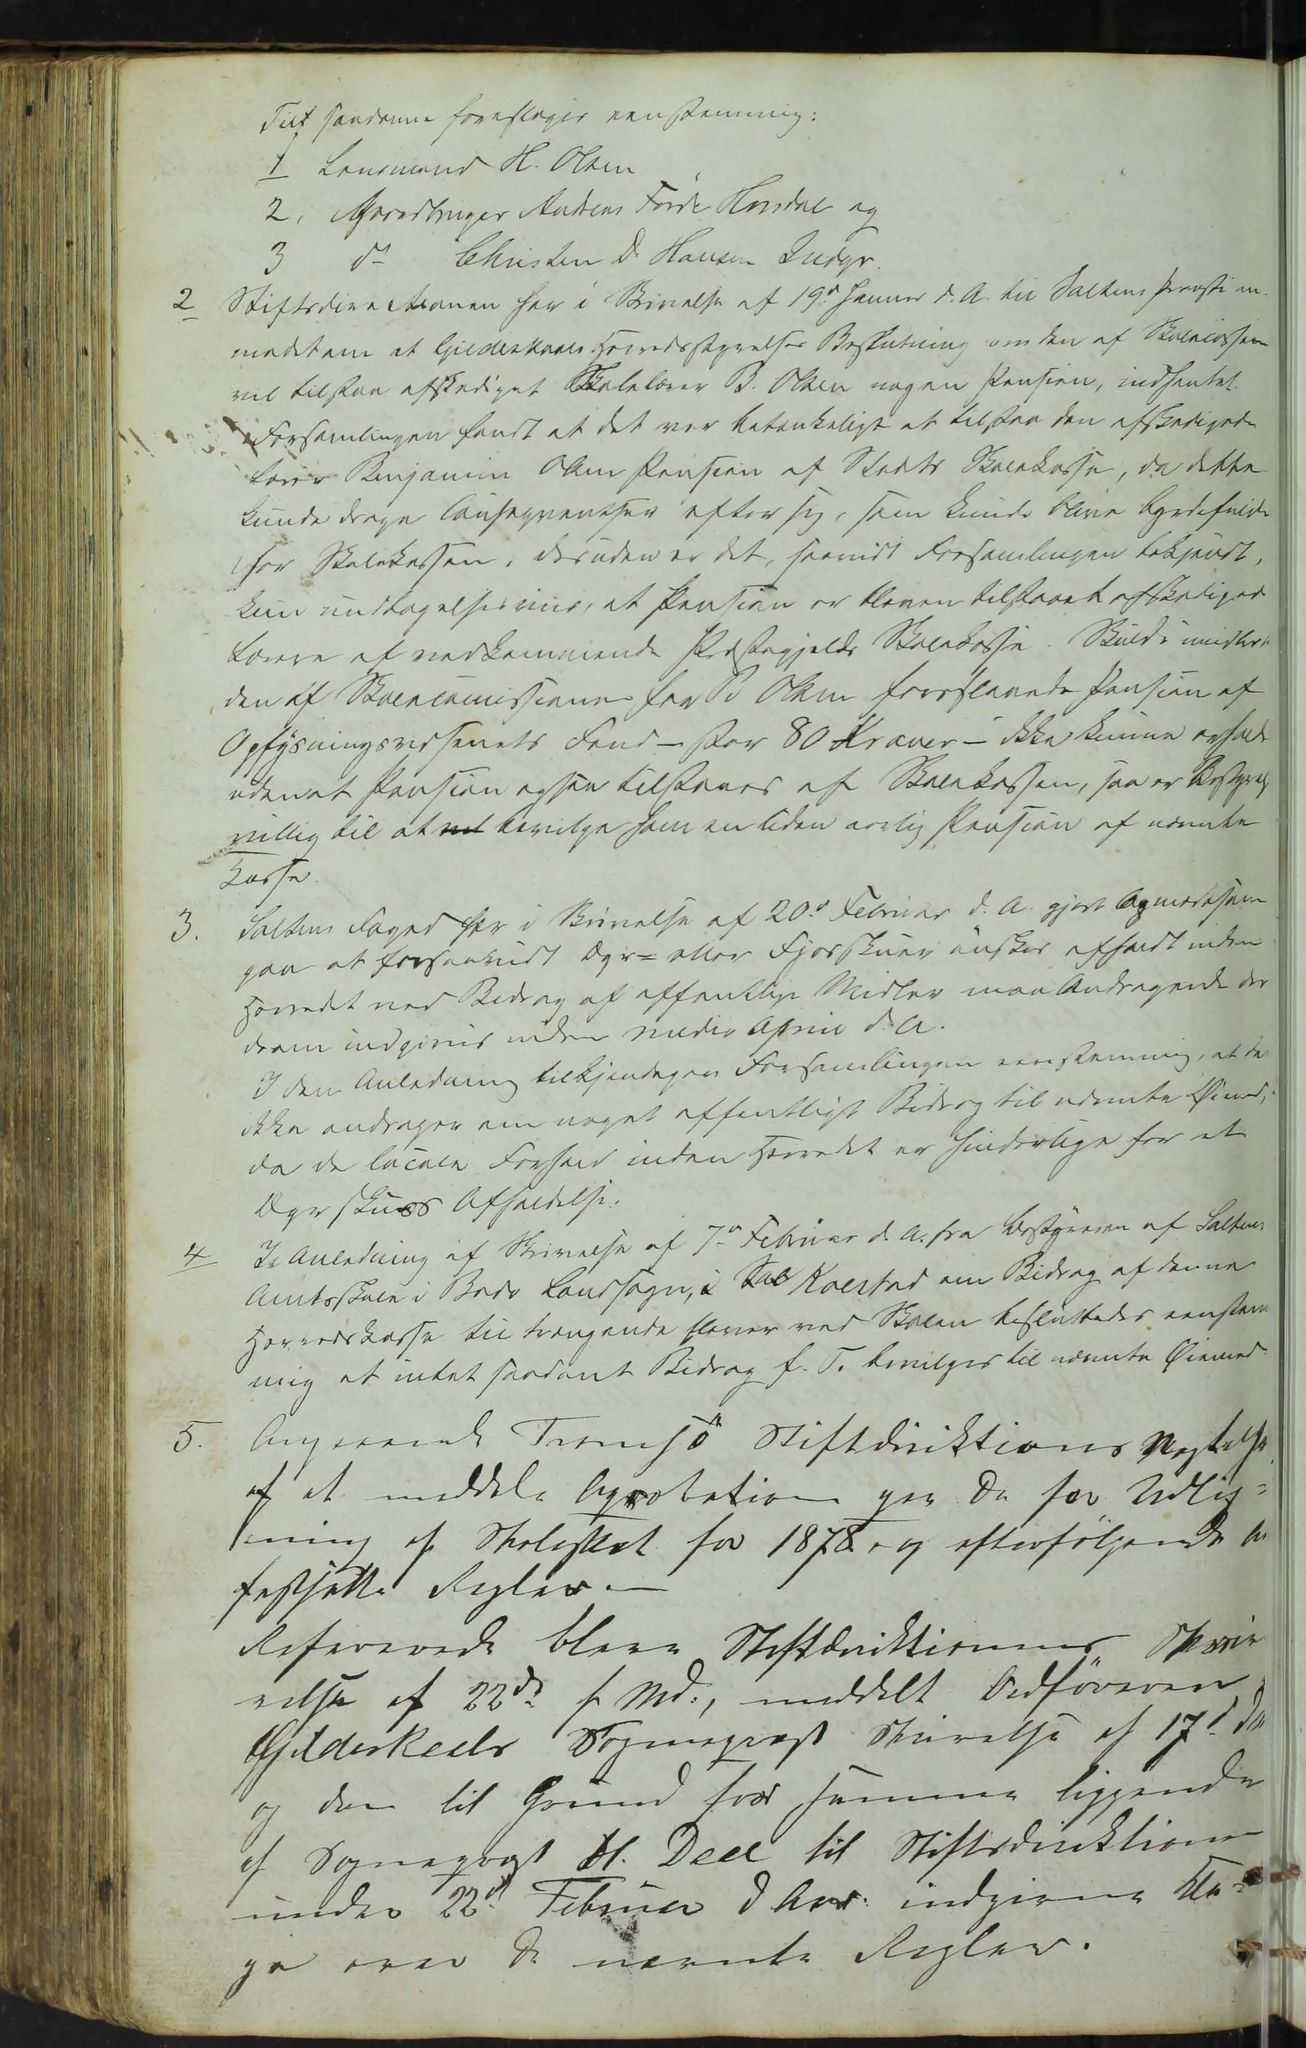 Till saadanne foreslages eenstemmig:
1 Lensmand H. Olsen
2, Gaardbruger Anders Hondal og
3 do Christen D. Hansen Indyr.
2 Stiftsdirectionen har i Skrivelse af 19d Januar d. A. til Saltens Provsti an-
modet om at Gildeskaals Herredsstyrelses Beslutning om den af Skolecassen
vil tilstaa afskediget Skolelærer B. Olsen nogen Pension, indhentet.
Forsamlingen fandt at det var betænkeligt at tilstaa den afskedigede
Lærer Benjamin Olsen Pension af Stedets Skolekasse, da dette
kunde drage Consequentser efter sig, som kunde blive byrdefulde
for Skolekassen, desuden er det, saavidt Forsamlingen bekjendt,
kun undtagelsesviis, at Pension er bleven tilstaaet afskediget
Lærere af vedkommende Præstegjelds Skolekasse. Skulde imidler-
den af Skolecommissionen for B. Olsen foreslaaede Pension af
Oplysningsvæsenets Fond - stor 80 Kroner - ikke kunne erholdes
uden at Pension ogsaa tilstaaes af Skolekassen, saa er Bestyrels
villig til at bevilge ham en liden aarlig Pension af nævnte
Kasse.
3. Saltens Foged har i Skrivelse af 20d Februar d. A. gjort Opmærksom
paa at forsaavidt Dyr= eller Fjøsskuer ønskes afholdt inden
Herredet ved Bidrag af offentlige Midler maa Andragende der
derom indgives inden medio April d. A.
I den Anledning tilkjendegav Forsamlingen eenstemmig, at den
ikke andrager om noget offentligt Bidrag til nævnte Øiemed,
da de locale Forhold inden Herredet er hinderlige for et
Dyrskues Afholdelse.
4 I Anledning af Skrivelse af 7d Februar d. A. fra Bestyreren af Saltens
Amtsskole i Bodø Landsogn, i Kolstad om Bidrag af denne
Herredskasse til trængende Elever ved Skolen besluttedes eenstem
mig at intet saadant Bidrag f. T. bevilges til nævnte Øiemed.
5. Angaaende Tromsö Stiftdirektions Negtelse
af at meddele Approbation paa de for Udlig=
ning af Skoleskat for 1878 og efterfölgende Aar
festsatte Regler. —
Refererede bleve Stiftdirektionens Skriv
velse af 22de f. Md., meddelt Ordföreren
Gildeskaals Sogneprest Skrivelse af 17d ds
og den til Grund for samme liggende
af Sogneprest Hl. Deel til Stiftsdirektionen
under 22d Februar d. Aar. indgivne Kla=
ge over de nævnte Regler.